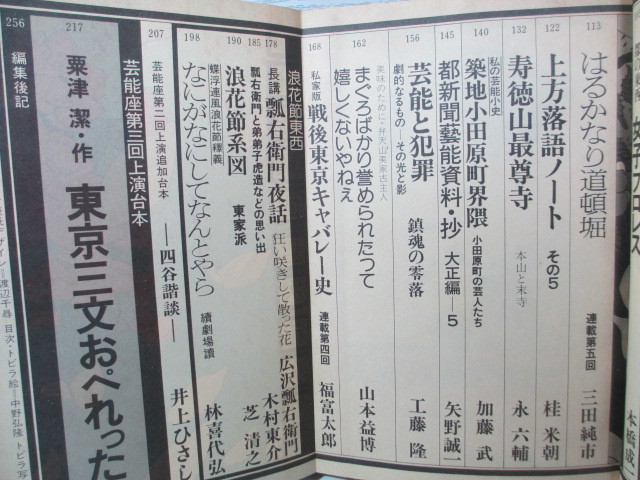 113
はるかなり道頓堀
連載第五回
三田純市
122
上方落語ノート その5
桂 米朝
132
寿徳山最尊寺
本山と末寺
永 六輔
140
私の芸能小史
築地小田原町界隈
小田原町の芸人たち
加藤 武
145
都新聞藝能資料・抄 大正編—5
矢野誠一
156
芸能と犯罪
劇的なるもの その光と影
鎮魂の零落
工藤 隆
162
まぐろばかり誉められたって
嬉しくないやねえ
美味のために・弁天山美家古主人
山本益博
168
私家版 戦後東京キャバレー史
連載第四回
福富太郎
浪花節東西
178
長講 瓢右衛門夜話
狂い咲きして散った花
広沢瓢右衛門
185
瓢右衛門と弟弟子虎造などの思い出
木村東介
190
浪花節系図
東家派
芝 清之
198
なにがなにしてなんとやら
蝶浮連風浪花節釋義
續劇場讀
林喜代弘
207
芸能座第二回上演追加台本
—四谷諧談—
井上ひさし
芸能座第三回上演台本
217
粟津 潔・作
東京三文おぺれった
256
編集後記
デザイン—渡辺千尋 目次・トビラ絵—中野弘隆 トビラ写
本橋成一